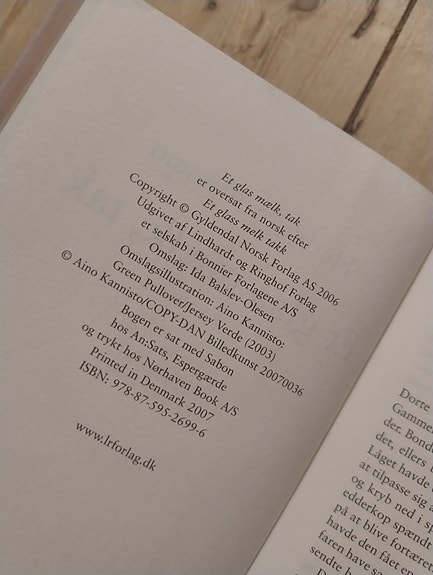 Et glas mælk, tak
er oversat fra norsk efter
Et glass melk takk
Copyright © Gyldendal Norsk Forlag AS 2006
Udgivet af Lindhardt og Ringhof Forlag
et selskab i Bonnier Forlagene A/S
Omslag: Ida Balslev-Olesen
Omslagsillustration: Aino Kannisto:
Green Pullover/Jersey Verde (2003)
© Aino Kannisto/COPY-DAN Billedkunst 20070036
Bogen er sat med Sabon
hos An:Sats, Espergærde
og trykt hos Nørhaven Book A/S
Printed in Denmark 2007
ISBN: 978-87-595-2699-6
www.lrforlag.dk
Dorte
der. Bond
det, ellers
Låget havde
at tilpasse sig
og kryb ned i
edderkop spændt
på at blive fortæret.
havde den fået en
faren have
sendte